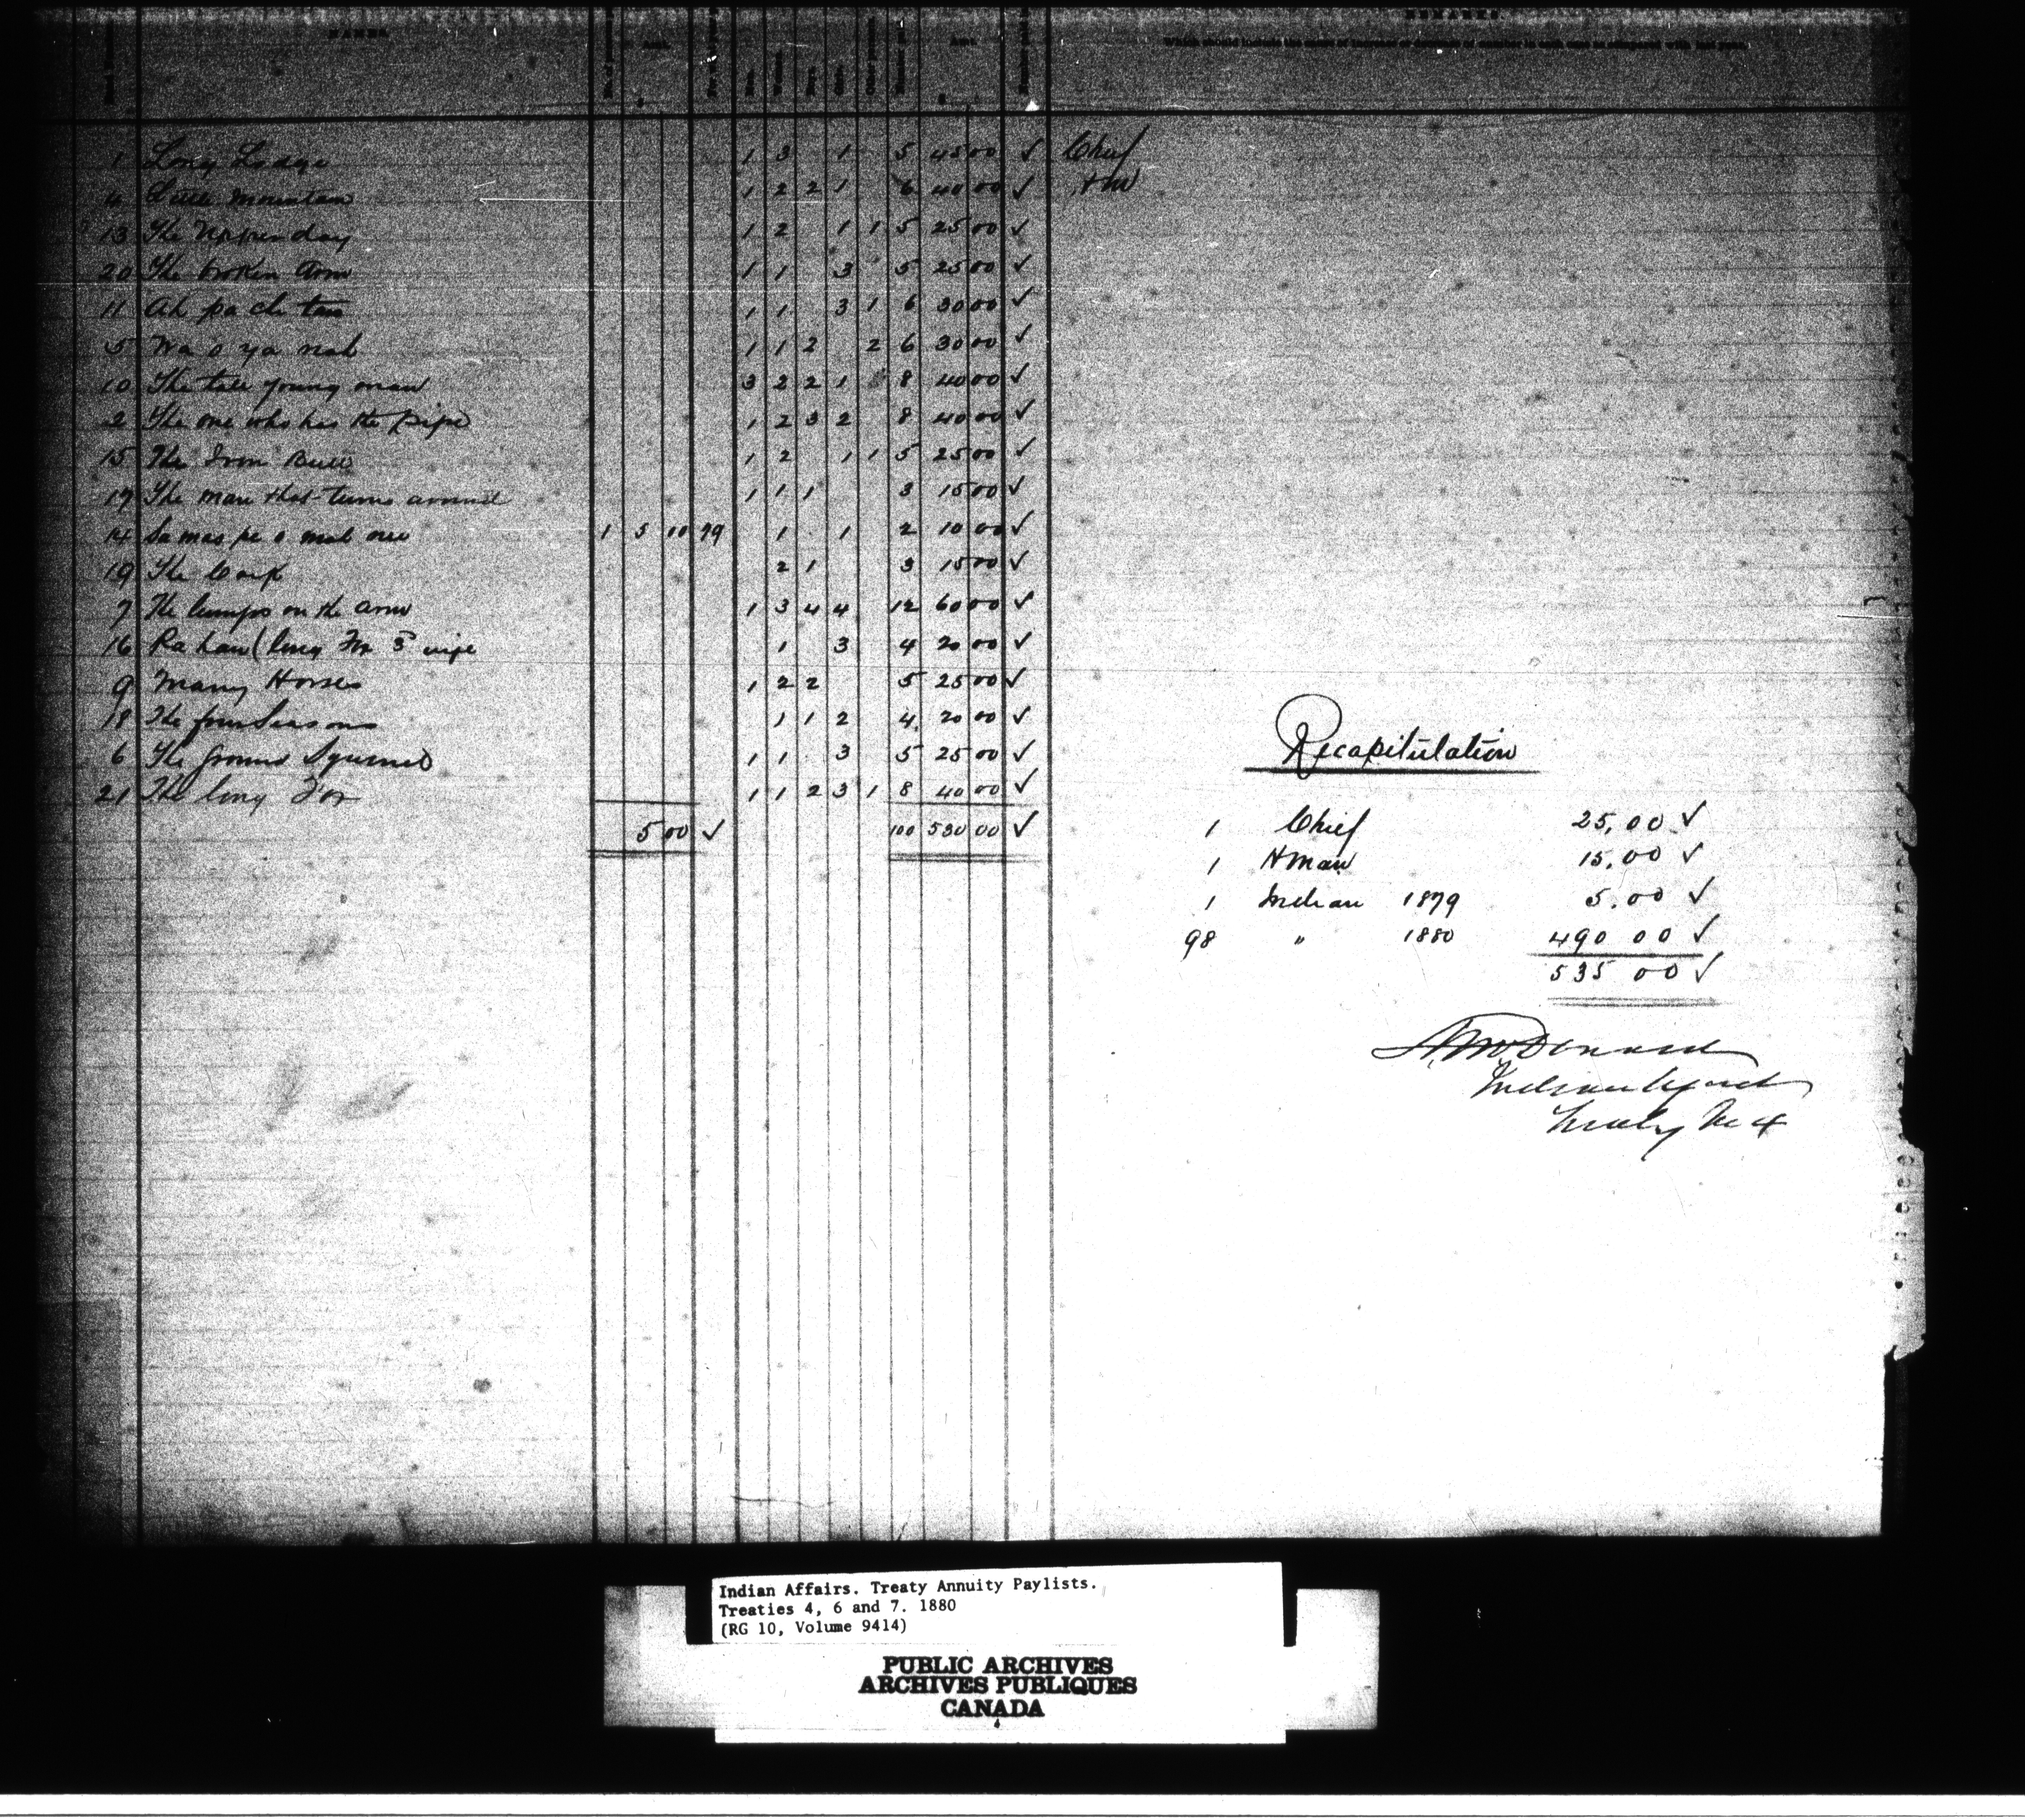 NAMES. Amt. Men. Women. Boys. Girls. Amt. REMARKS.
Which should include the cause of increase or decrease of number in each case as compared with last year.
1 Long Lodge 1 3 1 5 45 00 ✓ Chief
4 Little Mountain 1 2 2 1 6 40 00 ✓ H M
13 The day 1 2 1 1 5 25 00 ✓
20 The broken Arm 1 1 3 5 25 00 ✓
11 Ah pa chi tan 1 1 3 1 6 30 00 ✓
5 Wa o ya nah 1 1 2 2 6 30 00 ✓
10 The tall young man 3 2 2 1 8 40 00 ✓
2 The one who has the pipe 1 2 3 2 8 40 00 ✓
15 The Iron Bull 1 2 1 1 5 25 00 ✓
17 The man that turns around 1 1 1 3 15 00 ✓
14 Sa mas pe o 1 5 00 79 1 1 2 10 00 ✓
19 The 2 1 3 15 00 ✓
7 The lumps on the arm 1 3 4 4 12 60 00 ✓
16 (long Fox 3rd wife 1 3 4 20 00 ✓
9 Many Horses 1 2 2 5 25 00 ✓
18 The four Seasons 1 1 2 4 20 00 ✓
6 The ground Squirrel 1 1 3 5 25 00 ✓
21 The long Fox 1 1 2 3 1 8 40 00 ✓
5 00 ✓ 100 530 00 ✓
Recapitulation
1 Chief 25.00 ✓
1 H man 15.00 ✓
1 Indian 1879 5.00 ✓
98 " 1880 490 00 ✓
535 00 ✓
A McDonald
Indian Agent
Treaty No 4
Indian Affairs. Treaty Annuity Paylists.
Treaties 4, 6 and 7. 1880
(RG 10, Volume 9414)
PUBLIC ARCHIVES
ARCHIVES PUBLIQUES
CANADA